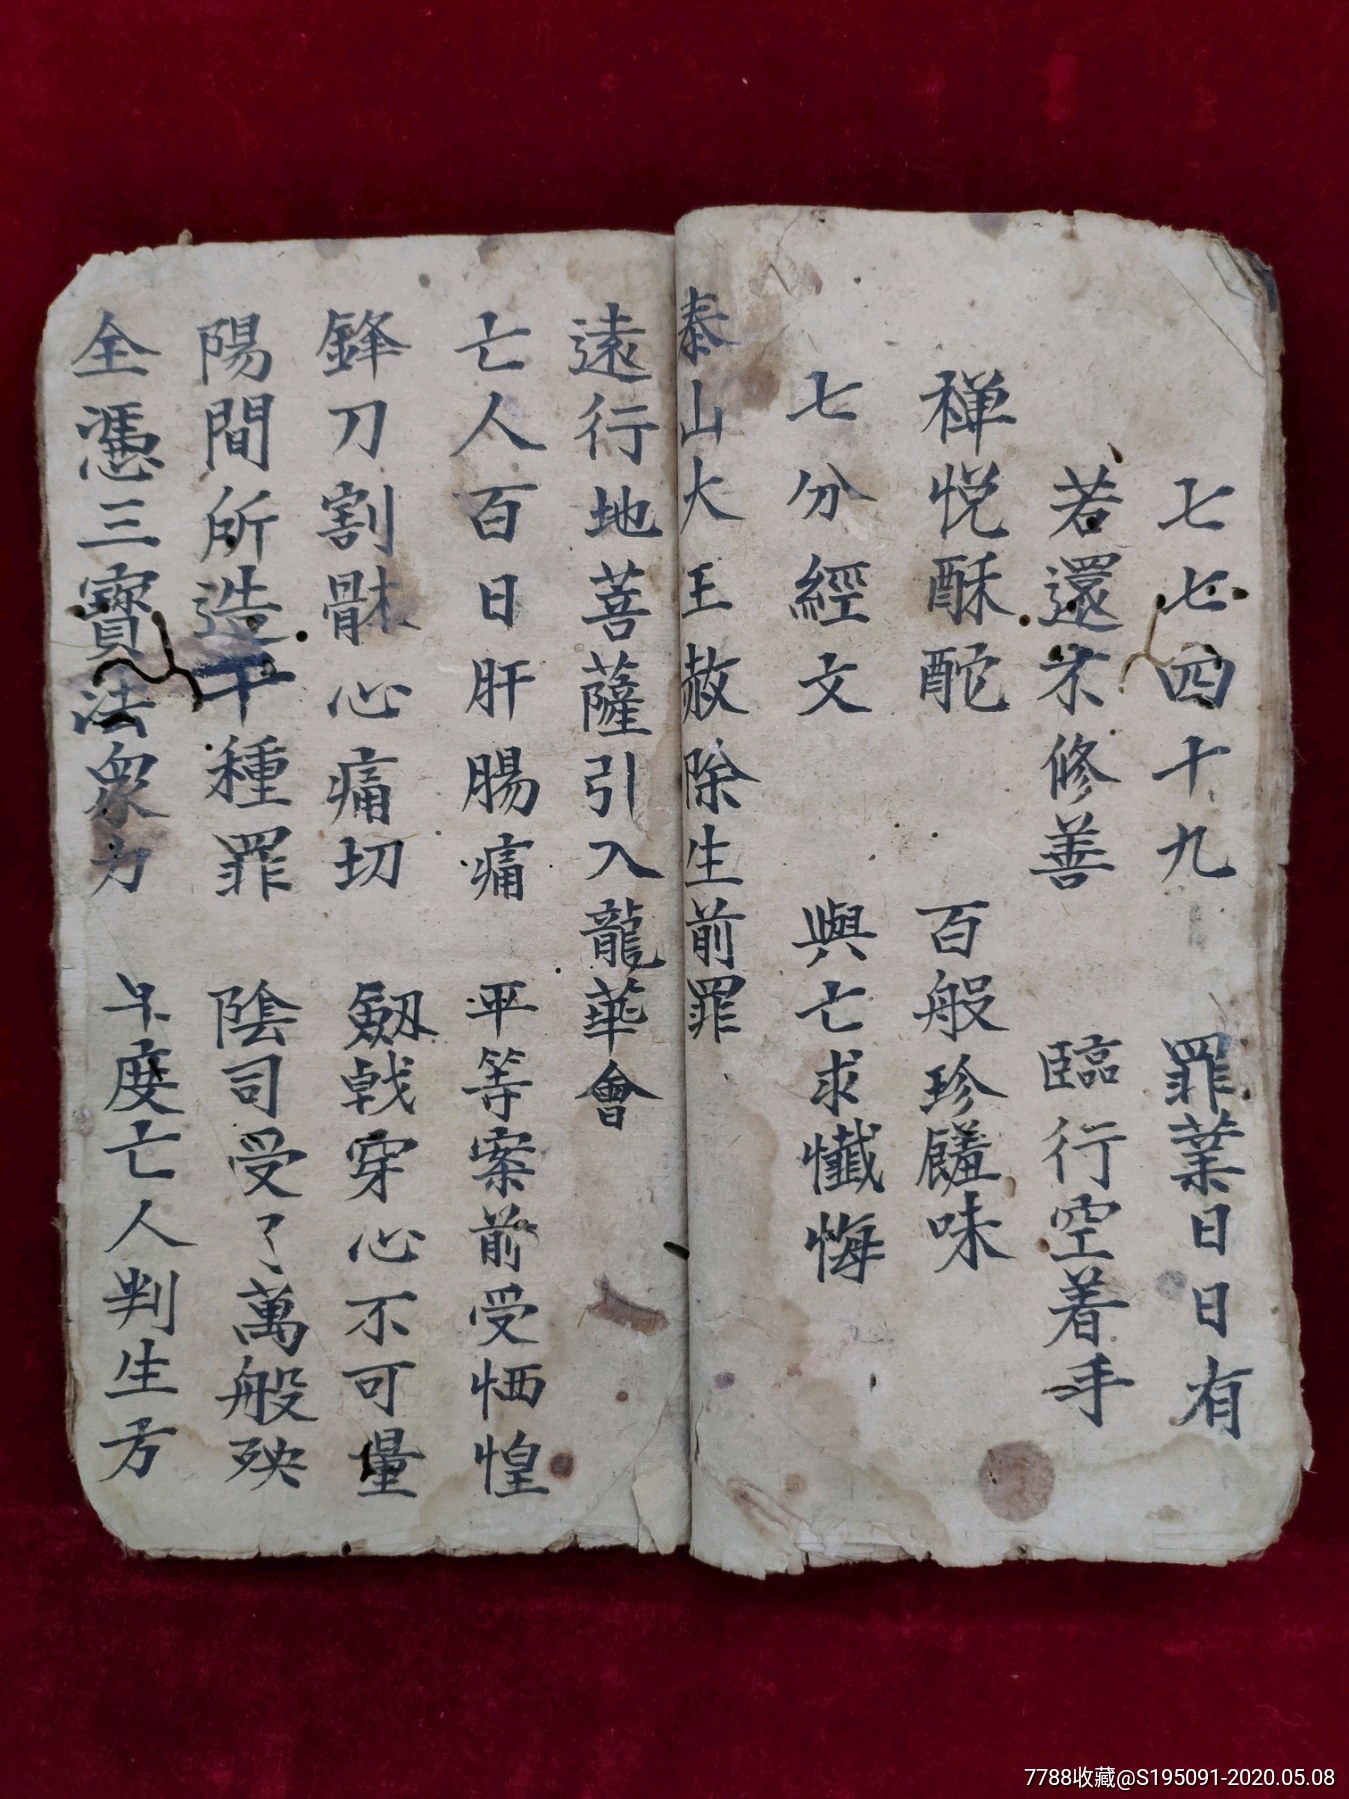 七七四十九 罪業日日有
若還不修善 臨行空着手
禅悅酥酡 百般珍饈味
七分經文 與亡求懺悔
泰山大王赦除生前罪
遠行地菩薩引入龍華會
亡人百日肝腸痛 平等案前受恓惶
鋒刀割骵心痛切 劔戟穿心不可量
陽間所造千種罪 陰司受了萬般殃
全憑三寶法衆力 早度亡人判生方
7788收藏@S195091-2020.05.08